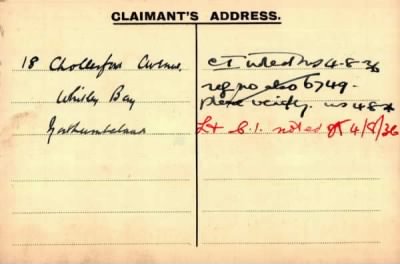 CLAIMANT'S ADDRESS.
18 Chollerford Avenue,
Whitley Bay
Northumberland
C I noted ws 4-8-36
reg. no also 6749.
please verify. ws 4-8-36
Lt C.I. noted 4/8/36